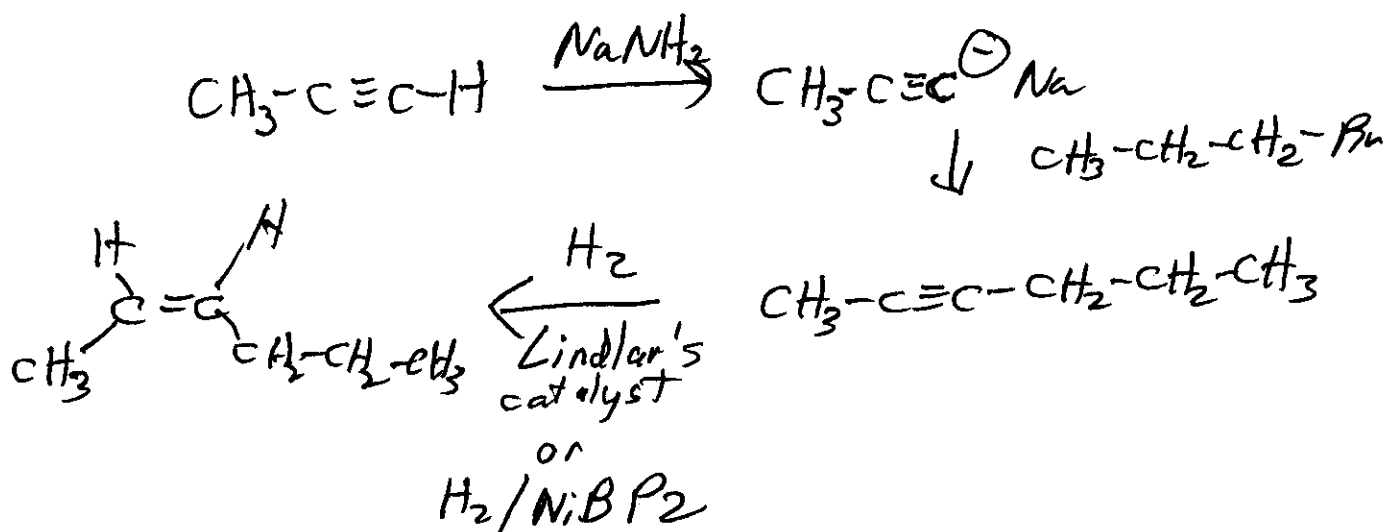 NaNH₂
CH₃-C≡C-H → CH₃-C≡C⊖ Na
↓ CH₃-CH₂-CH₂-Br
CH₃-C≡C-CH₂-CH₂-CH₃
H₂
←
Lindlar's
catalyst
or
H₂/NiB P2
H H
C=C
CH₃ CH₂-CH₂-CH₃